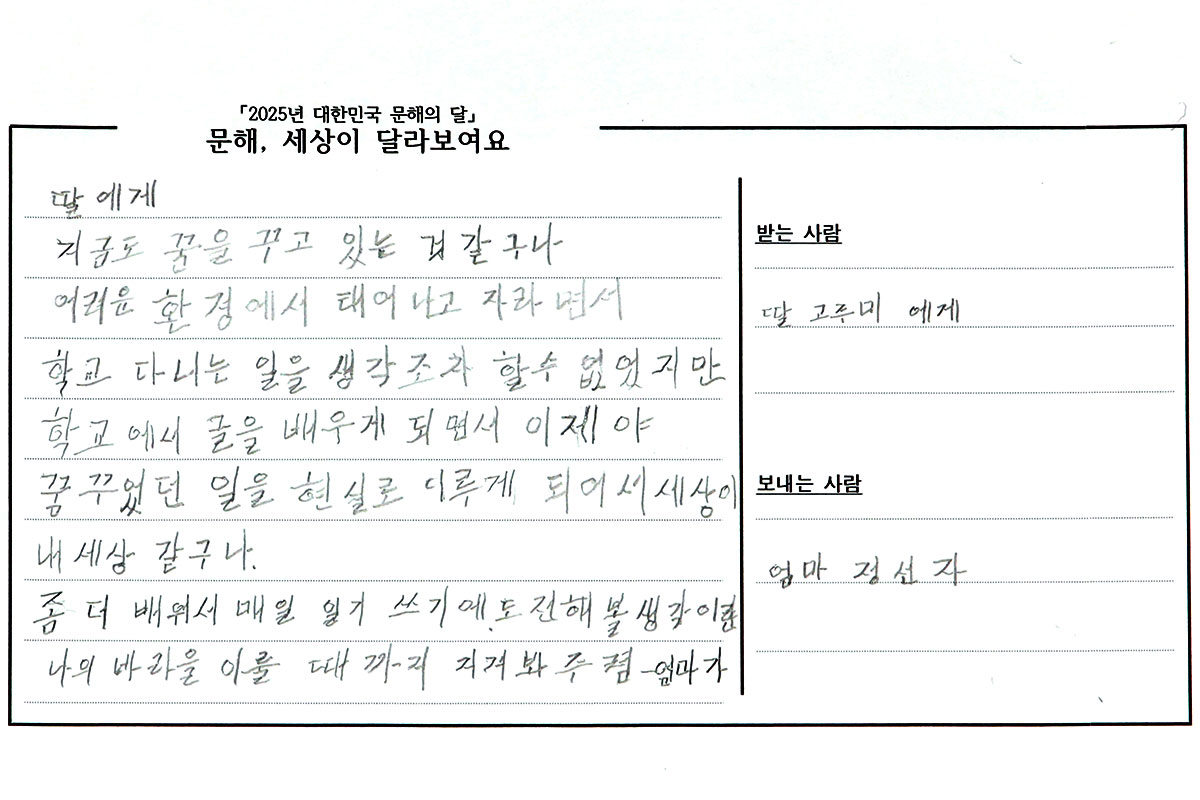 「2025년 대한민국 문해의 달」
문해, 세상이 달라보여요
딸에게
지금도 꿈을 꾸고 있는 겨 같구나
어려운 환경에서 태어나고 자라면서
학교 다니는 일을 생각조차 할수 없었지만
학교에서 글을 배우게 되면서 이제야
꿈꾸었던 일을 현실로 이루게 되어서 세상이
내 세상 같구나.
좀 더 배워서 매일 일기 쓰기에도전해 볼 생각이란
나의 바라을 이룰 때까지 지켜봐주렴 -엄마가
받는 사람
딸 고루미 에게
보내는 사람
엄마 정선자